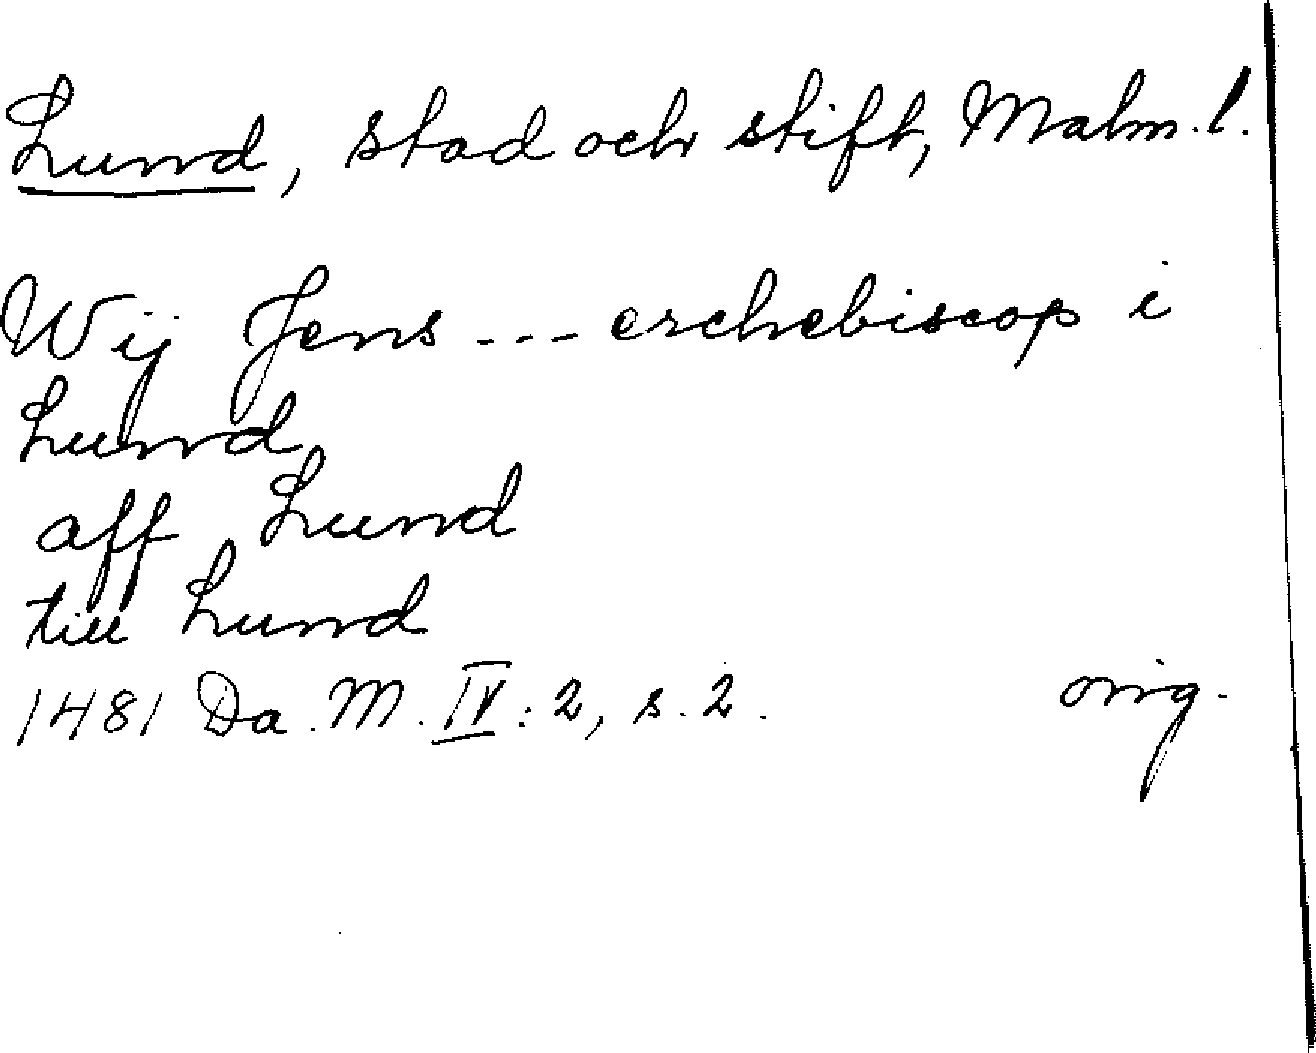 Lund, stad och stift, Malm. l.
Wij Jens --- erchebiscop i
Lund
aff Lund
till Lund
1481 Da. M. IV: 2, s. 2. orig.